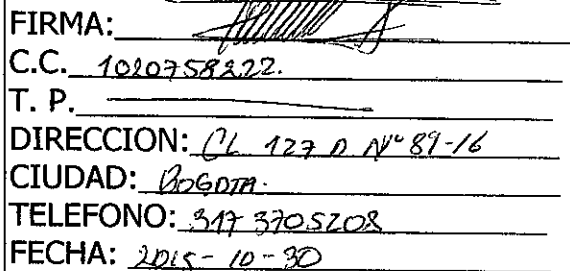 FIRMA:
C.C. 1020758222.
T. P.
DIRECCION: CL 127 D Nº 89-16
CIUDAD: BOGOTA.
TELEFONO: 317 3705208
FECHA: 2015-10-30